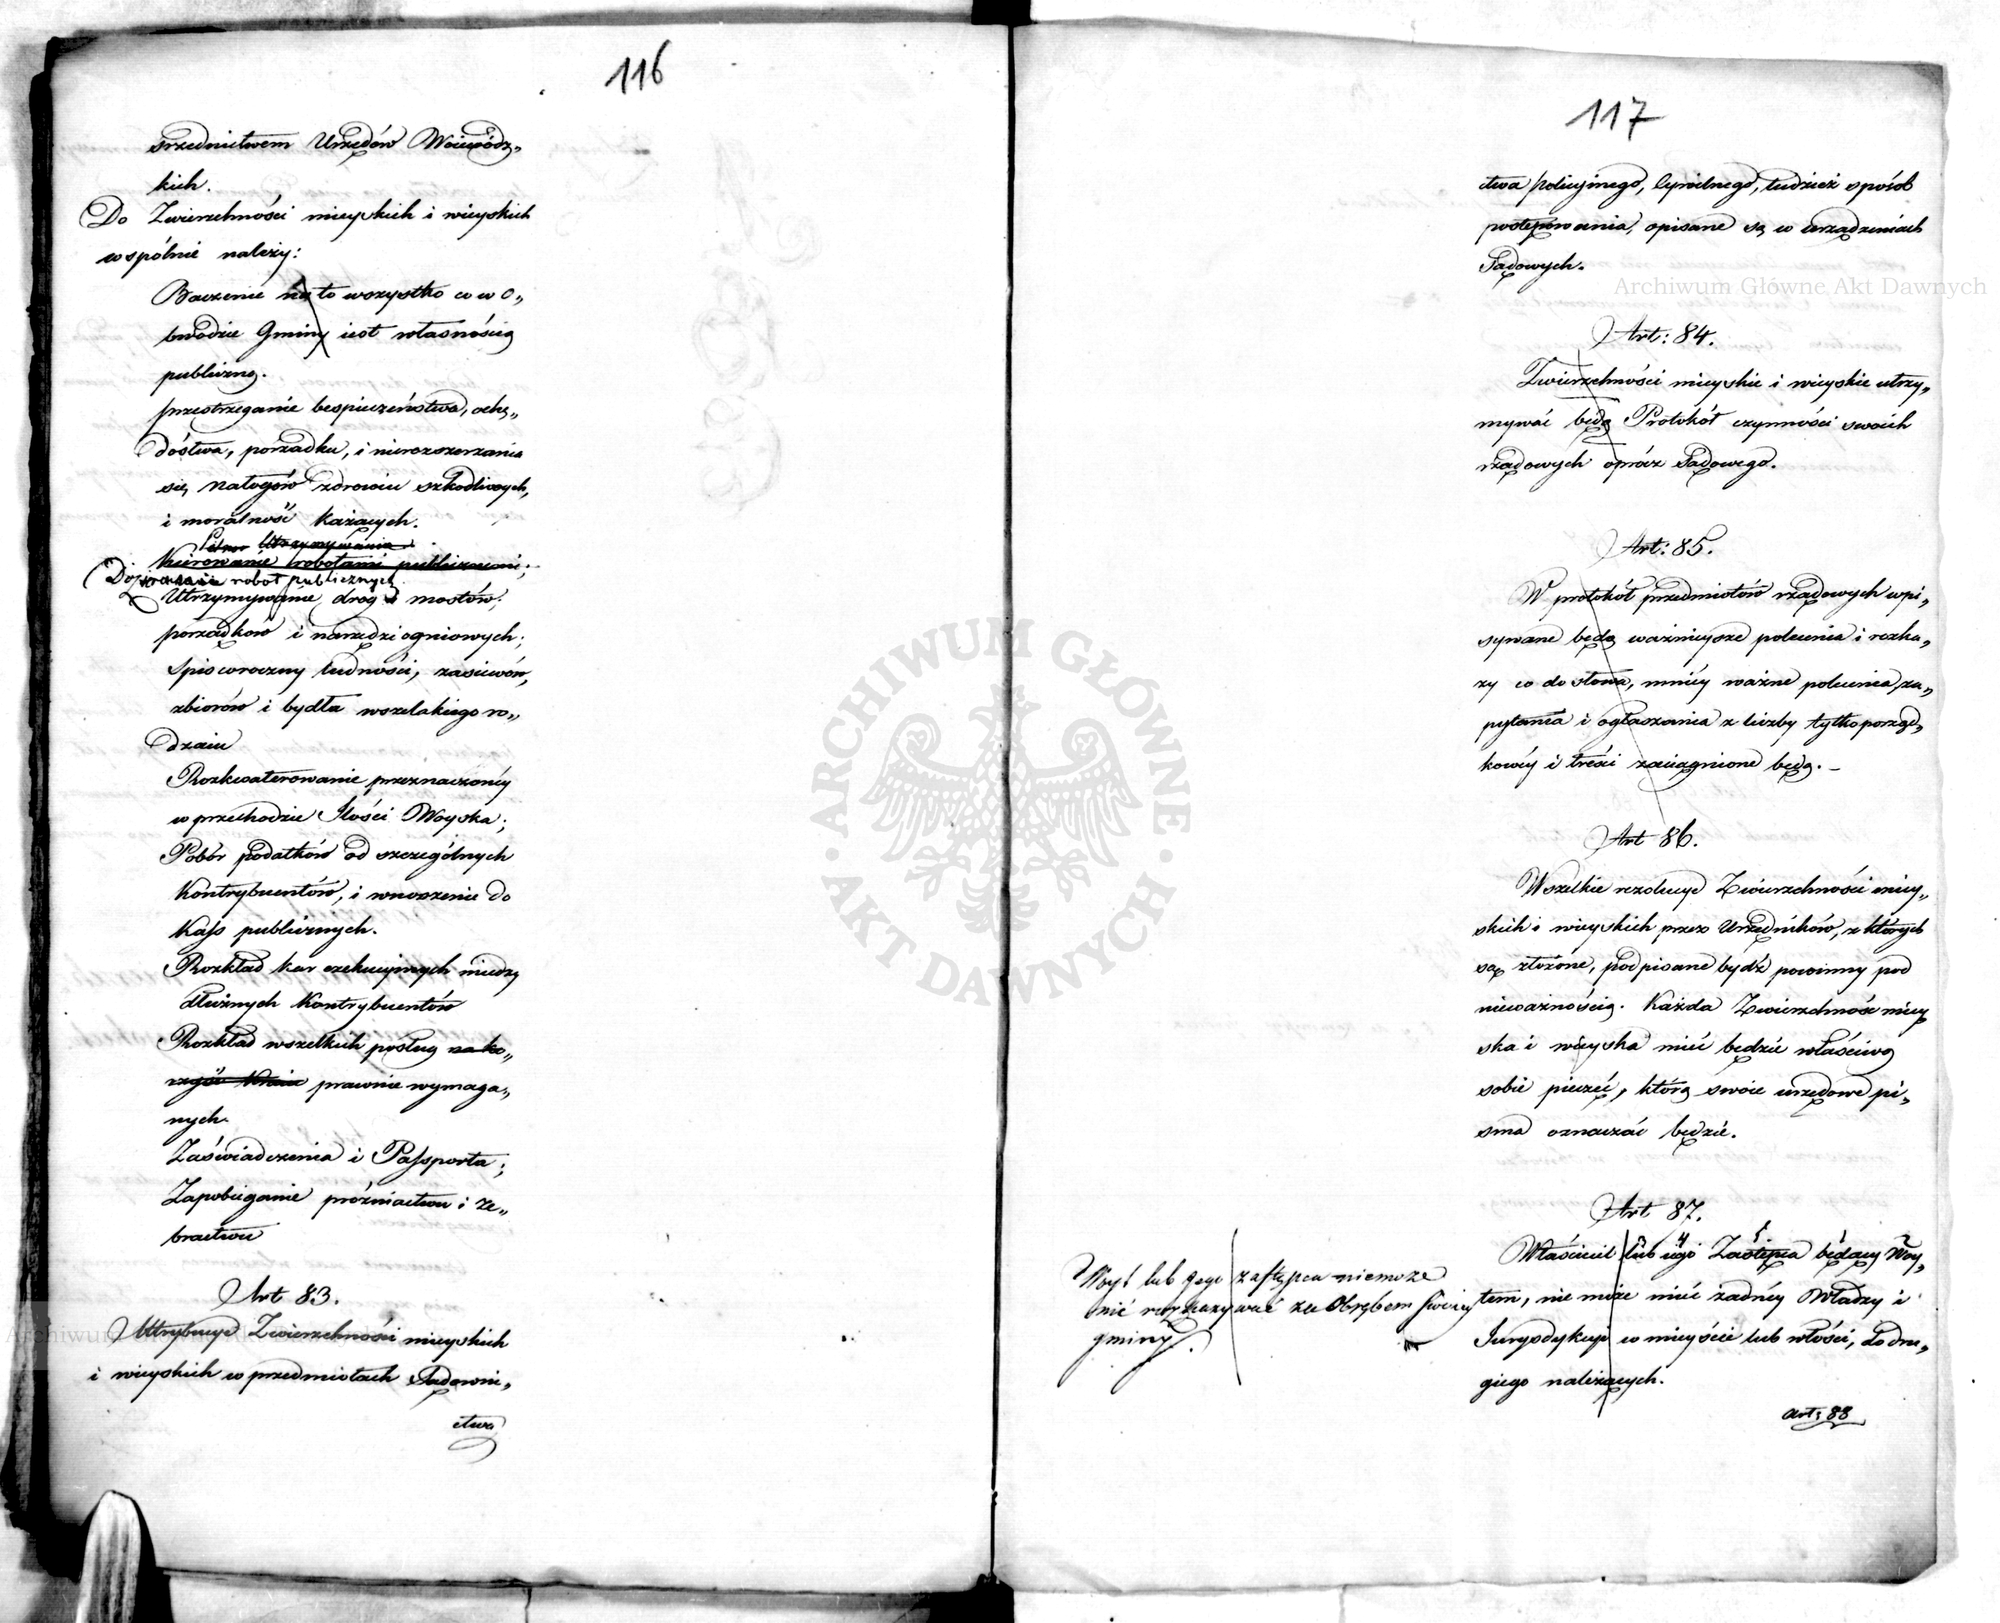 116
srzednictwem Urzędów Woiewódz„
kich.
Do Zwierzchności mieyskich i wieyskich
wspólnie należy:
Baczenie na to wszystko co w o„
bwodzie Gminy iest własnością
publiczną.
przestrzeganie bespieczeństwa, ochę„
dóstwa, porządku, i nierozszerzania
się nałogów zdrowiu szkodliwych,
i moralność każących.
Utrzymywania
Kierowanie robotami publicznemi;
Dozorowanie robot publicznych
Utrzymywanie dróg i mostów;
porządków i narzędzi ogniowych;
Spis coroczny ludności, zasiewów,
zbiorów i bydła wszelakiego ro„
dzaiu
Rozkwaterowanie przeznaczoney
w przechodzie Ilości Woyska;
Pobór podatków od szczególnych
Kontrybuentów, i wnoszenie do
Kass publicznych.
Rozkład kar exekucyinych między
dłużnych Kontrybuentów
Rozkład wszelkich posług na ko„
rzyść Kraiu prawnie wymaga„
nych.
Zaświadczenia i Passporta;
Zapobieganie próżniactwu i że„
bractwu
Art 83.
Attrybucye Zwierzchności mieyskich
i wieyskich w przedmiotach Sądowni„
ctwa
117
ctwa policyinego, Cywilnego, tudzież sposób
postępowania, opisane są w urządzeniach
Sądowych.
Art: 84.
Zwierzchności mieyskie i wieyskie utrzy„
mywać będą Protokół czynności swoich
rządowych oprócz Sądowego.
Art: 85.
W protokół przedmiotów rządowych wpi„
sywane będą ważnieysze polecenia i rozka„
zy co do słowa, mniey ważne polecenia, za„
pytania i ogłaszania z liczby tylko porząd„
kowéy i treści zaciągnione będą.–
Art 86.
Wszelkie rezolucye Zwierzchności miey„
skich i wieyskich przez Urzędników, z których
są złożone, podpisane bydź powinny pod
nieważnością. Każda Zwierzchność miey
ska i wieyska mieć będzie właściwą
sobie pieczęć, którą swoie urzędowe pi„
sma oznaczać będzie.
Art 87.
Właściciel lub iego Zastępca będący Woy„
tem, nie może mieć żadnéy Władzy i
Jurysdykcyi w mieście lub włości, do dru„
giego należących.
Art: 88
Woyt lub jego zastępca niemoże
nic rozkazywać za Obrębem swoiey
gminy.
Archiwum Główne Akt Dawnych
ARCHIWUM GŁÓWNE · AKT DAWNYCH ·